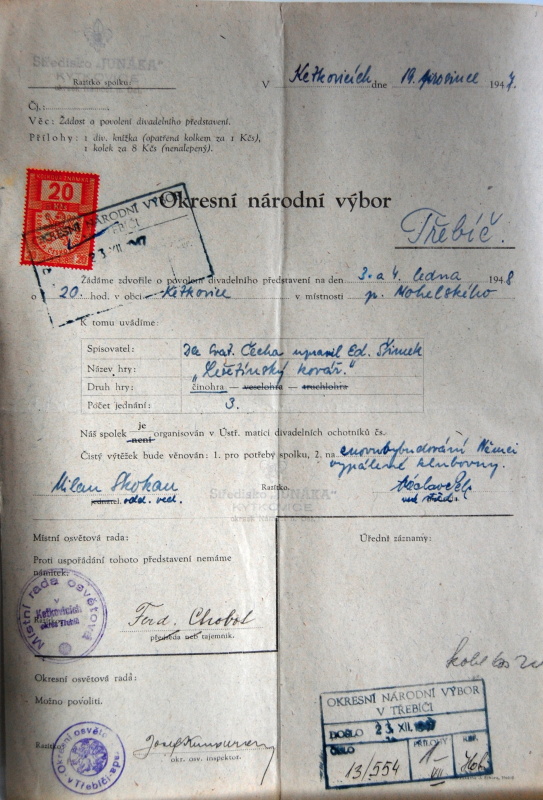 Středisko "JUNÁKA"
KYTKOVICE
Razítko spolku
V Ketkovicích dne 19. prosince 1947.
Čj.:
Věc: Žádost a povolení divadelního představení.
Přílohy: 1 div. knížka (opatřená kolkem za 1 Kčs),
1 kolek za 8 Kčs (nenalepený).
20
Kčs
Okresní národní výbor
Třebíč.
OKRESNÍ NÁRODNÍ VÝBOR
V TŘEBÍČI
23 XII. 1947
Žádáme zdvořile o povolení divadelního představení na den 3. a 4. ledna 1948
o 20. hod. v obci Ketkovice v místnosti p. Mohelského
K tomu uvádíme:
Spisovatel: Čecha upravil Ed. Šimek
Název hry: kovář."
Druh hry: činohra — veselohra — truchlohra
Počet jednání: 3.
Náš spolek je
není organisován v Ústř. matici divadelních ochotníků čs.
Čistý výtěžek bude věnován: 1. pro potřeby spolku, 2. na znovuvybudování Němci
vypálené klubovny.
Milan Skokan
Razítko.
jednatel. odd. ved.
Středisko "JUNÁKA"
KYTKOVICE
Místní osvětová rada:
Úřední záznamy:
Proti uspořádání tohoto představení nemáme
námitek.
Místní rada osvětová
v
Ketkovicích
okres Třebíč
Ferd. Chobot
předseda neb tajemník.
Okresní osvětová rada:
Možno povoliti.
Razítko
Josef
okr. osv. inspektor.
OKRESNÍ NÁRODNÍ VÝBOR
V TŘEBÍČI
DOŠLO 23 XII. 1947
ČÍSLO PŘÍLOHY REF.
13/554 1